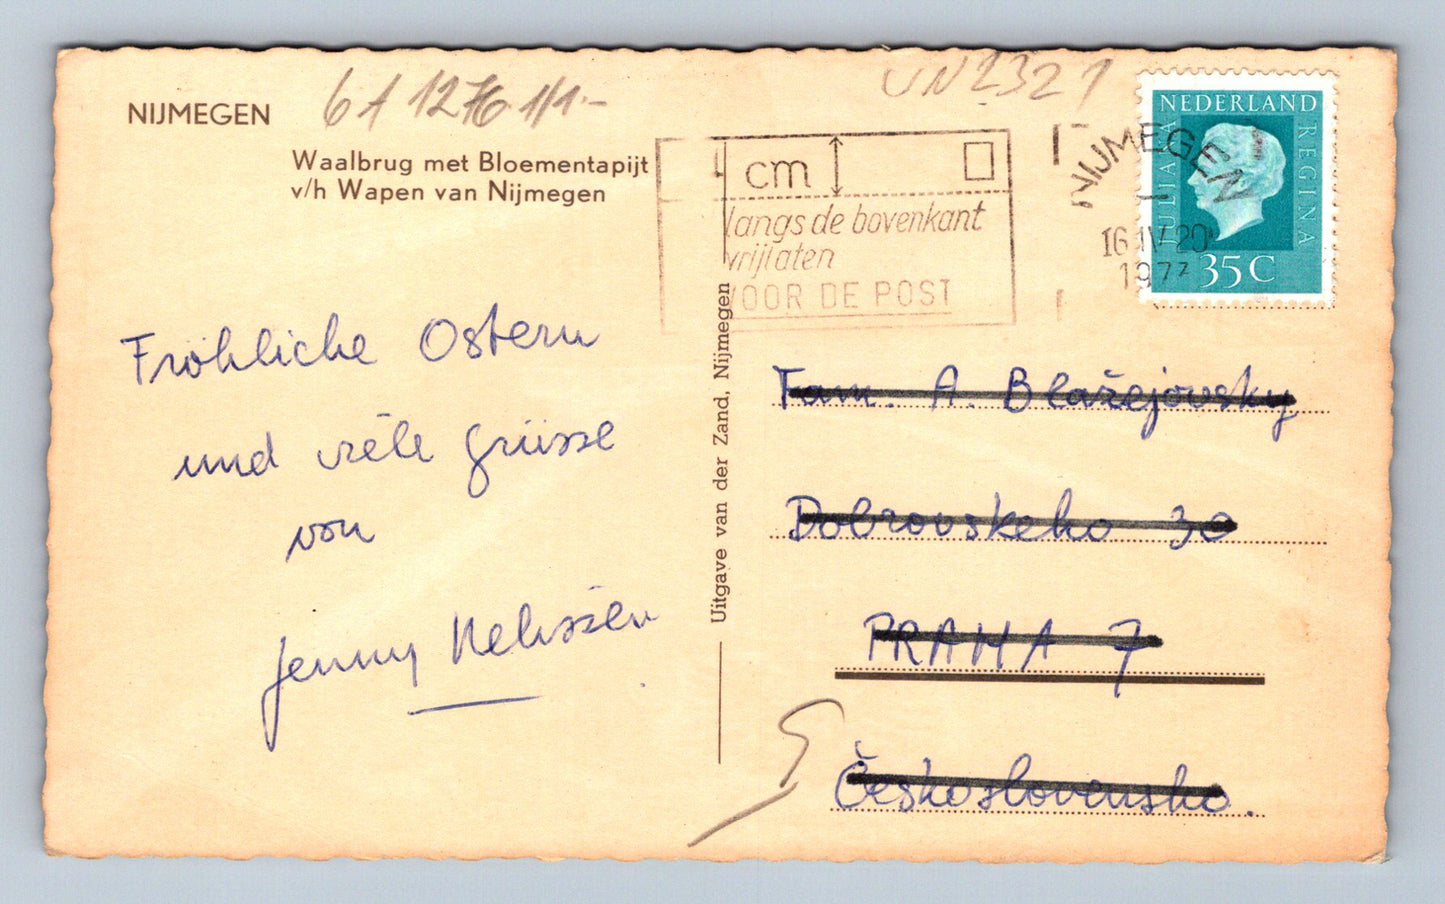 NIJMEGEN
Waalbrug met Bloementapijt
v/h Wapen van Nijmegen
Fröhliche Ostern
und viele Grüsse
von
Jenny Nelissen
Uitgave van der Zand, Nijmegen
cm
langs de bovenkant
vrijlaten
VOOR DE POST
NIJMEGEN
16 IV 20
1977
NEDERLAND
JULIANA
REGINA
35 C
UN2321
Fam. A. Blažejovsky
Dobrovskeho 30
PRAHA 7
Československo.